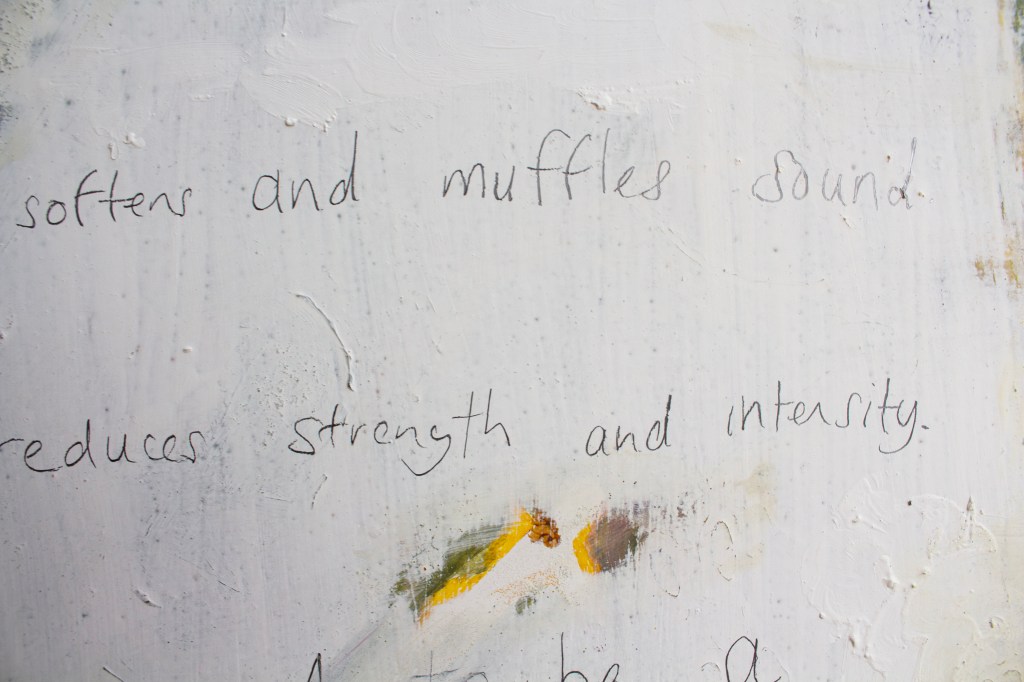 softens and muffles sound.
reduces strength and intensity.
to be a